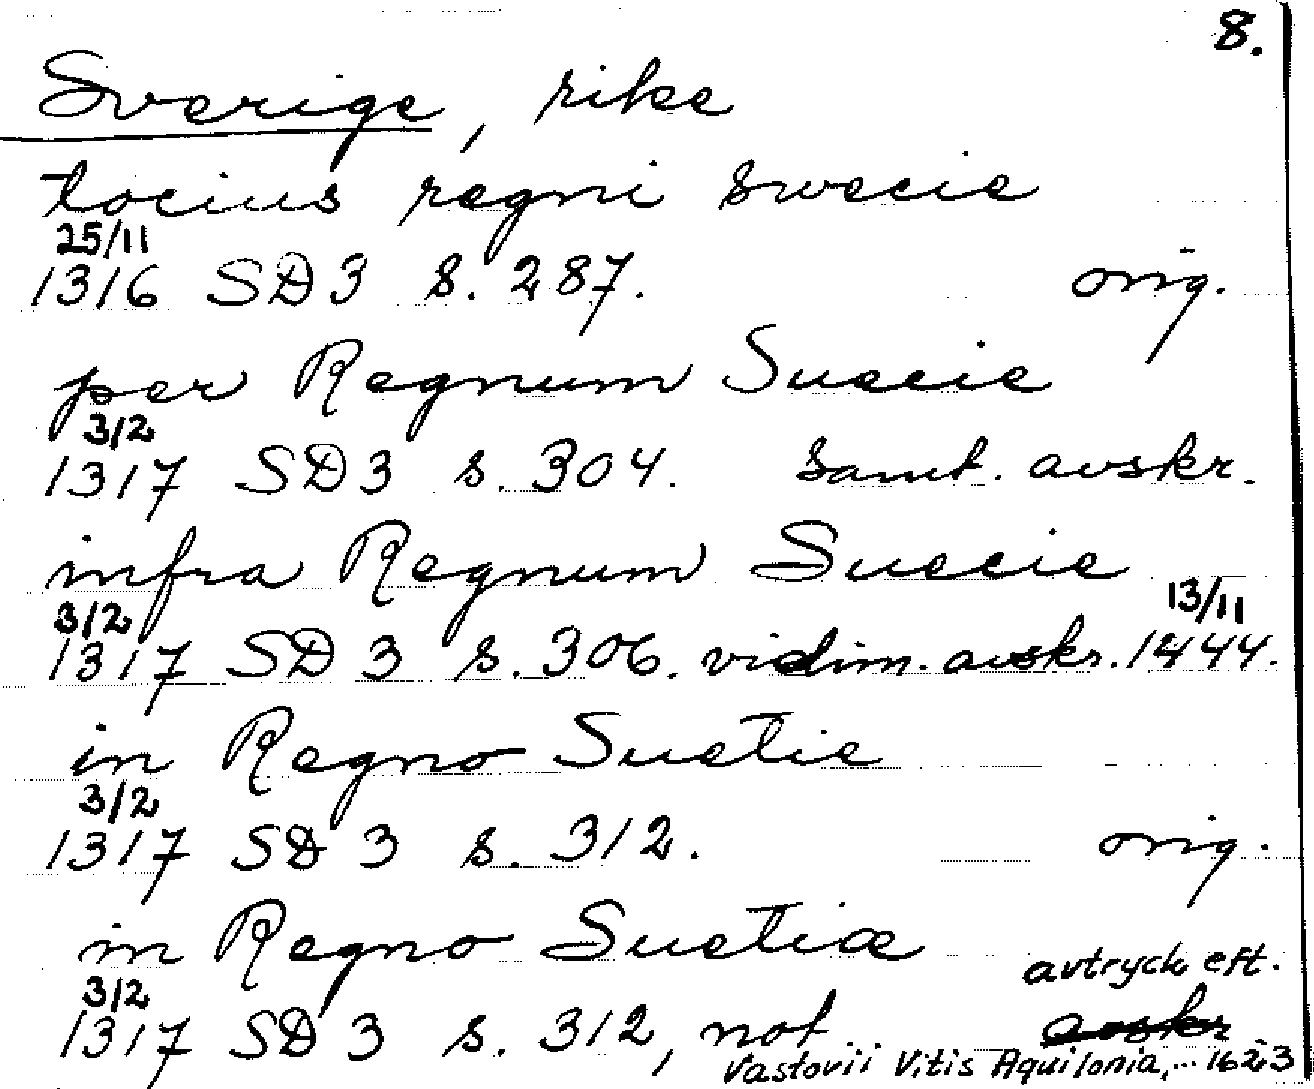 8.
Sverige, rike
tocius regni swecie
25/11
1316 SD 3 s. 287. orig.
per Regnum Suecie
3/2
1317 SD 3 s. 304. samt. avskr.
infra Regnum Suecie
3/2 13/11
1317 SD 3 s. 306. vidim. avskr. 1444.
in Regno Suetie
3/2
1317 SD 3 s. 312. orig.
in Regno Suetiæ
3/2 avtryck eft.
1317 SD 3 s. 312, not. avskr
Vastovii Vitis Aquilonia,... 1623